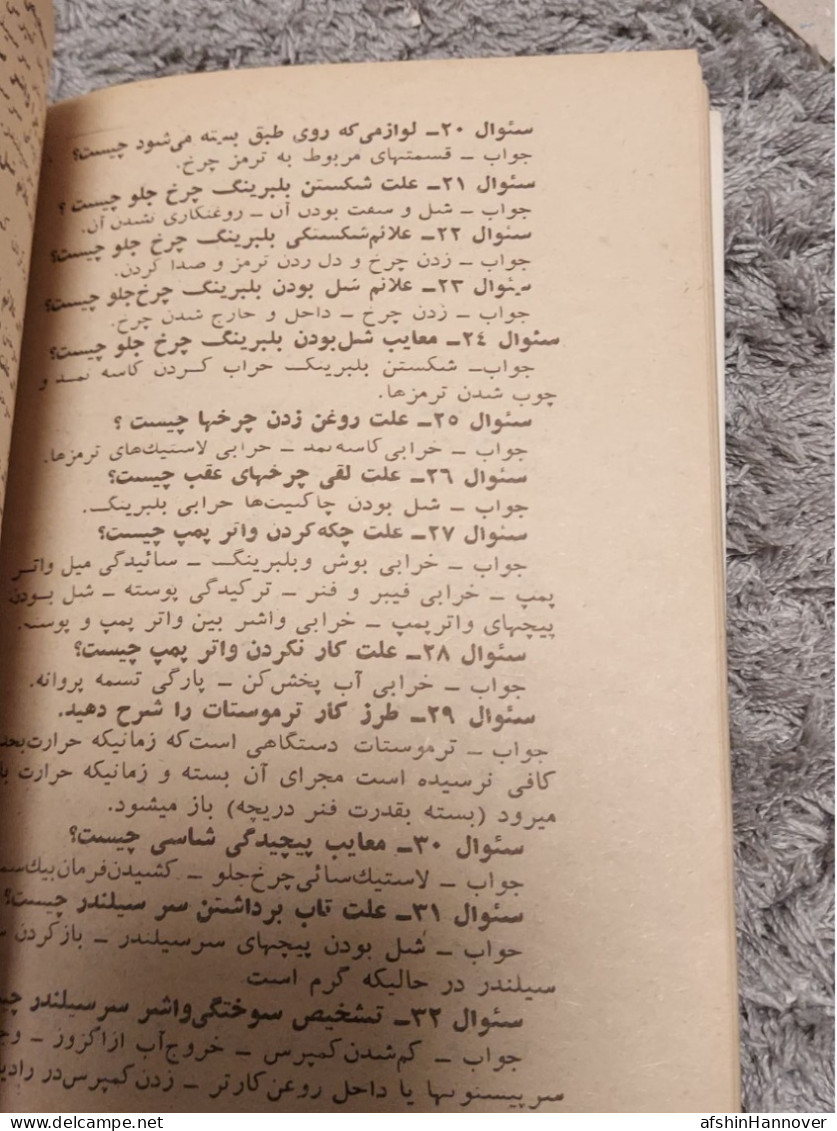 سئوال ۲۰ـ لوازمی‌که روی طبق بسته می‌شود چیست؟
جواب ـ قسمتهای مربوط به ترمز چرخ.
سئوال ۲۱ـ علت شکستن بلبرینگ چرخ جلو چیست؟
جواب ـ شل و سفت بودن آن ـ روغنکاری نشدن آن.
سئوال ۲۲ـ علائم‌شکستگی بلبرینگ چرخ جلو چیست؟
جواب ـ زدن چرخ و دل زدن ترمز و صدا کردن.
سئوال ۲۳ـ علائم شل بودن بلبرینگ چرخ‌جلو چیست؟
جواب ـ زدن چرخ ـ داخل و خارج شدن چرخ.
سئوال ۲۴ـ معایب شل‌بودن بلبرینگ چرخ جلو چیست؟
جواب‌ـ شکستن بلبرینگ خراب کردن کاسه نمد و
چوب شدن ترمزها.
سئوال ۲۵ـ علت روغن زدن چرخها چیست ؟
جواب ـ خرابی‌کاسه‌نمد ـ خرابی لاستیك‌های ترمزها.
سئوال ۲۶ـ علت لقی چرخهای عقب چیست؟
جواب ـ شل بودن چاکنیت‌ها خرابی بلبرینگ.
سئوال ۲۷ـ علت چکه‌کردن واتر پمپ چیست؟
جواب ـ خرابی بوش وبلبرینگ ـ سائیدگی میل واتر
پمپ ـ خرابی فیبر و فنر ـ ترکیدگی پوسته ـ شل بودن
پیچهای واترپمپ ـ خرابی واشر بین واتر پمپ و پوسته.
سئوال ۲۸ـ علت کار نکردن واتر پمپ چیست؟
جواب ـ خرابی آب پخش‌کن ـ پارگی تسمه پروانه.
سئوال ۲۹ـ طرز کار ترموستات را شرح دهید.
جواب ـ ترموستات دستگاهی است‌که زمانیکه حرارت
کافی نرسیده است مجرای آن بسته و زمانیکه حرارت
میرود (بسته بقدرت فنر دریچه) باز میشود.
سئوال ۳۰ـ معایب پیچیدگی شاسی چیست؟
جواب ـ لاستیك‌سائی‌چرخ‌جلو ـ کشیدن‌فرمان
سئوال ۳۱ـ علت تاب برداشتن سر سیلندر چیست؟
جواب ـ شل بودن پیچهای سرسیلندر ـ بازکردن
سیلندر در حالیکه گرم است
سئوال ۳۲ـ تشخیص سوختگی‌واشر سرسیلندر
جواب ـ کم‌شدن‌کمپرس ـ خروج‌آب ازاگزوز ـ
سرپیستونها یا داخل روغن‌کارتر ـ زدن‌کمپرس‌در
https://www.delcampe.net
afshinHannover